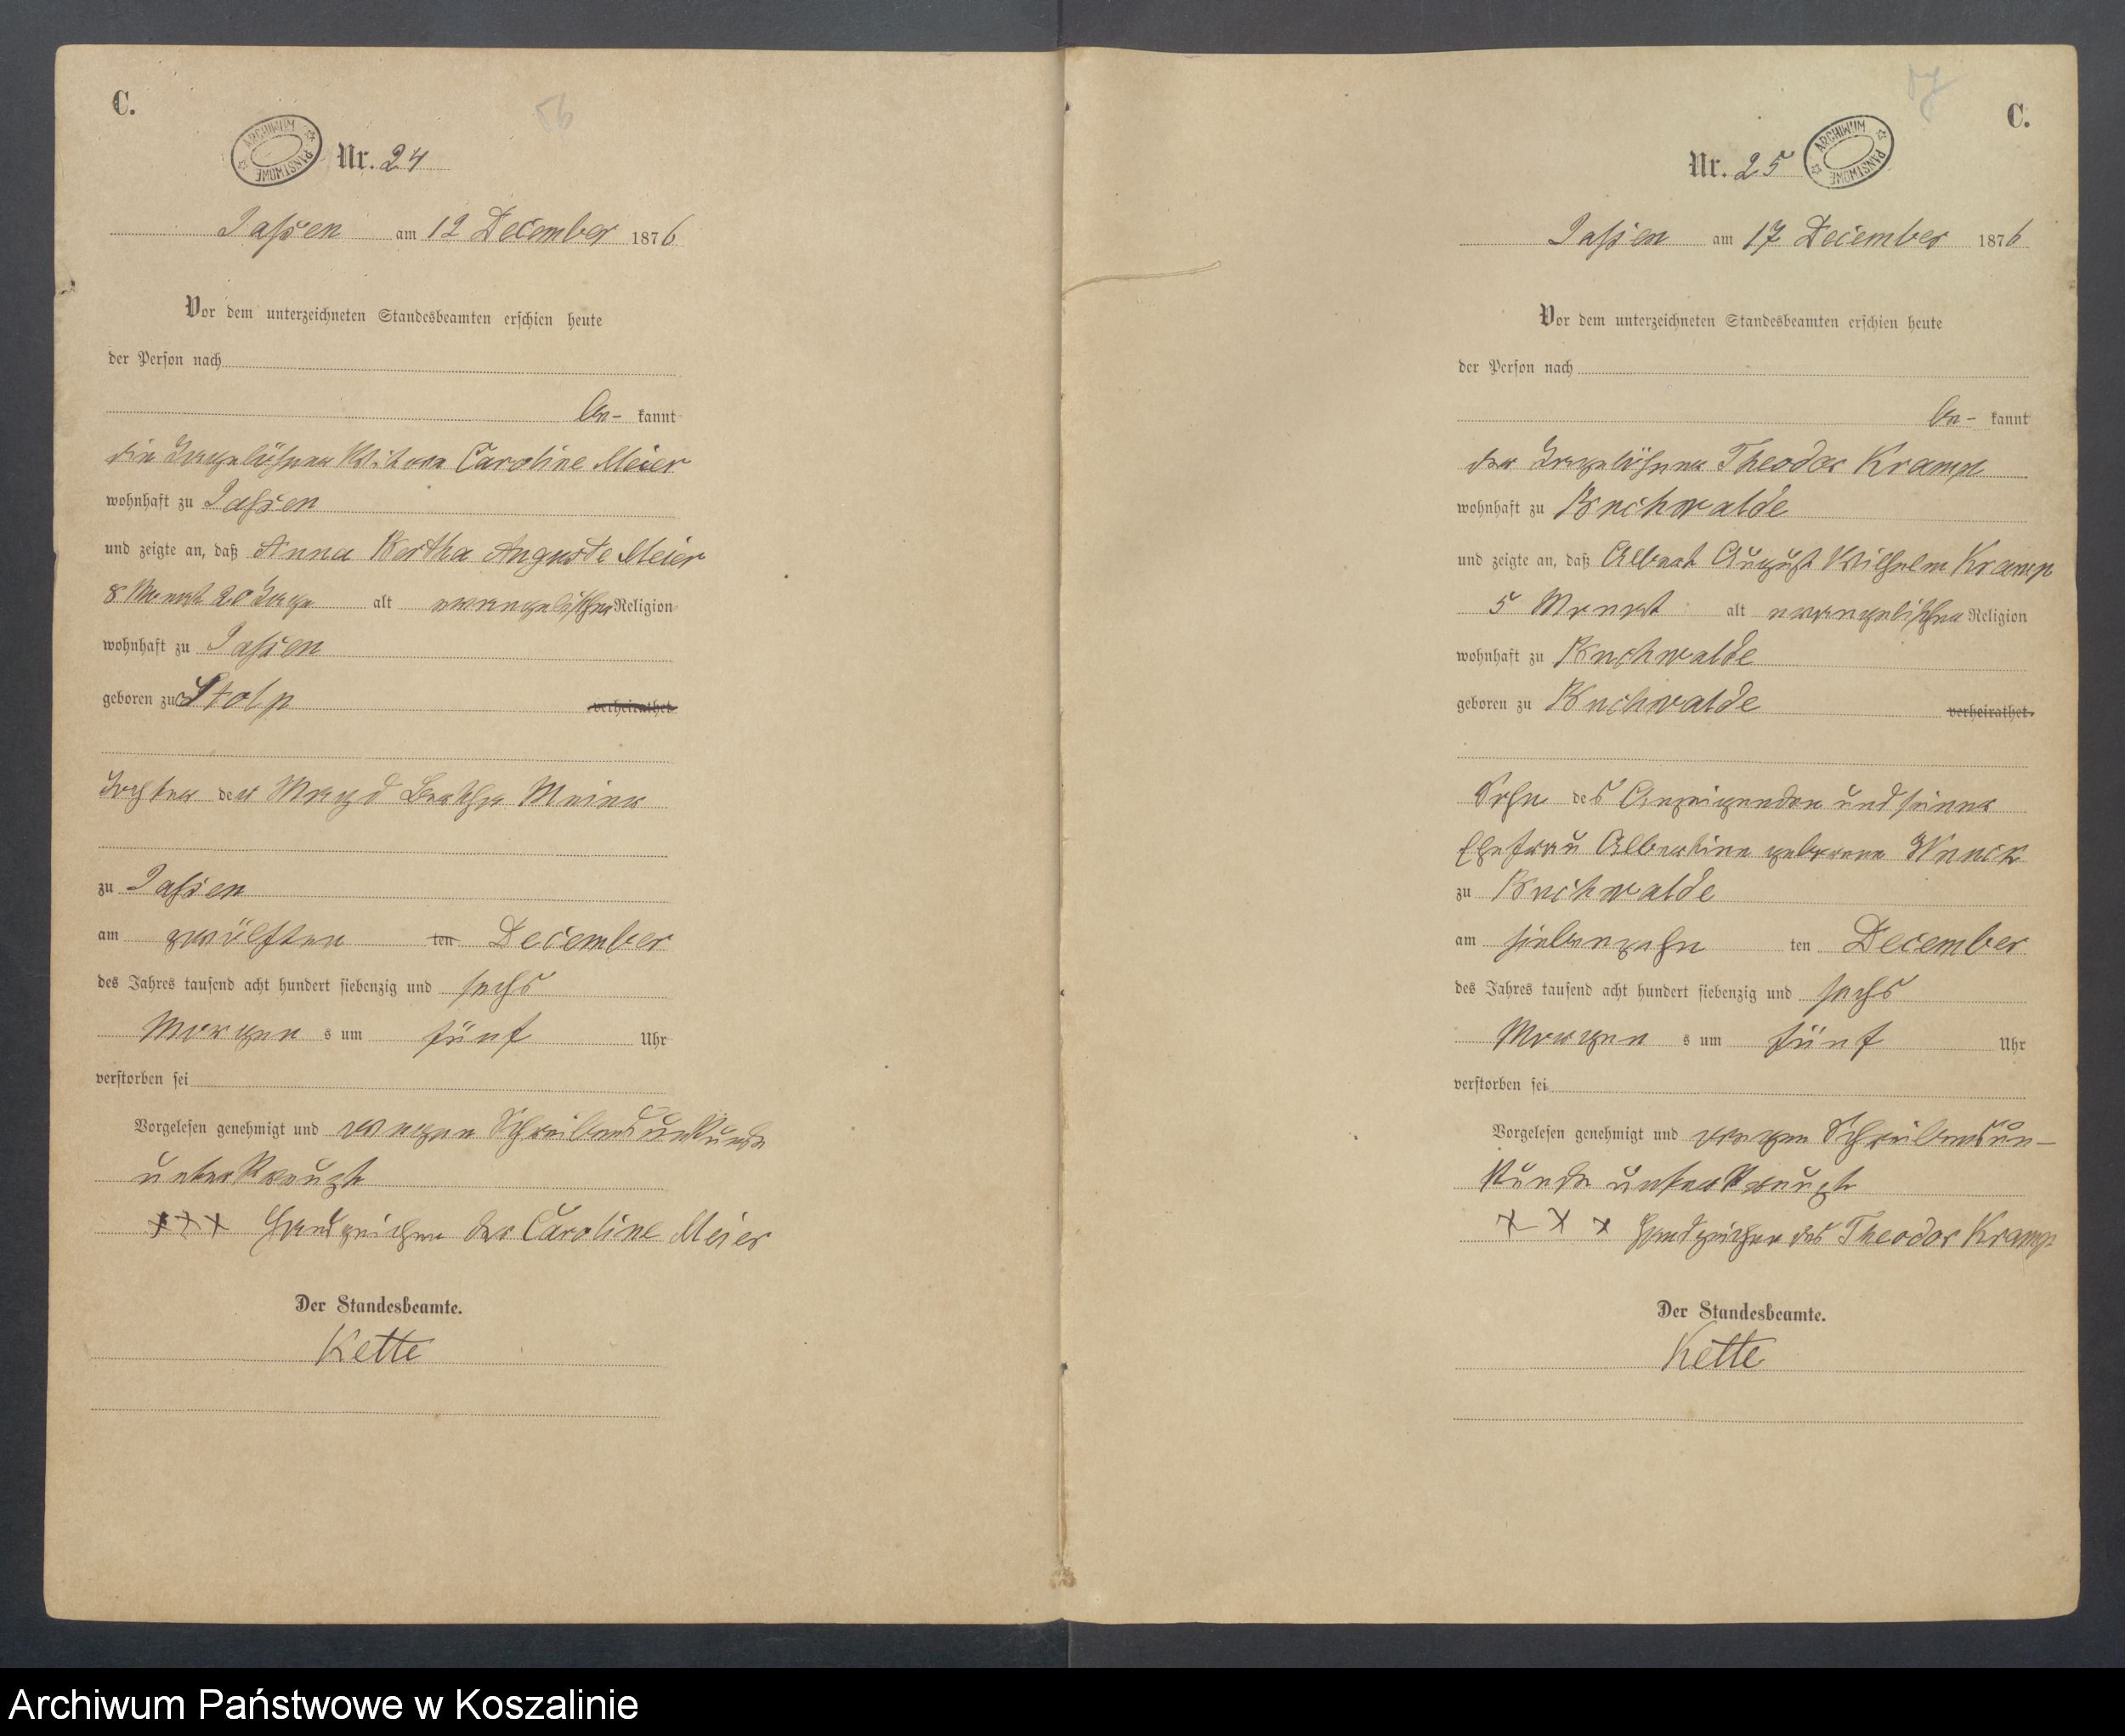 C.
56
ARCHIWUM PAŃSTWOWE
Nr. 24
Jassen am 12 December 1876
Vor dem unterzeichneten Standesbeamten erschien heute
der Person nach
be- kannt
die Tagelöhner Witwe Caroline Meier
wohnhaft zu Jassen
und zeigte an, daß Anna Bertha Auguste Meier
8 Monat 20 Tage alt evangelischer Religion
wohnhaft zu Jassen
geboren zu Stolp verheirathet
Tochter der Magd Bertha Meier
zu Jassen
am zwölften ten December
des Jahres tausend acht hundert siebenzig und sechs
Morgen s um fünf Uhr
verstorben sei
Vorgelesen genehmigt und wegen Schreibensunkunde
unterkreuzt
xxx Handzeichen der Caroline Meier
Der Standesbeamte.
Kette
57
C.
Nr. 25
ARCHIWUM PAŃSTWOWE
Jassen am 17 December 1876
Vor dem unterzeichneten Standesbeamten erschien heute
der Person nach
be- kannt
der Tagelöhner Theodor Kramp
wohnhaft zu Buchwalde
und zeigte an, daß Albert August Wilhelm Kramp
5 Monat alt evangelischer Religion
wohnhaft zu Buchwalde
geboren zu Buchwalde verheirathet.
Sohn des Anzeigenden und seiner
Ehefrau Albertine geborene
zu Buchwalde
am siebenzehn ten December
des Jahres tausend acht hundert siebenzig und sechs
Morgen s um fünf Uhr
verstorben sei
Vorgelesen genehmigt und wegen Schreibensun-
kunde unterkreuzt
x x x Handzeichen des Theodor Kramp
Der Standesbeamte.
Kette
Archiwum Państwowe w Koszalinie